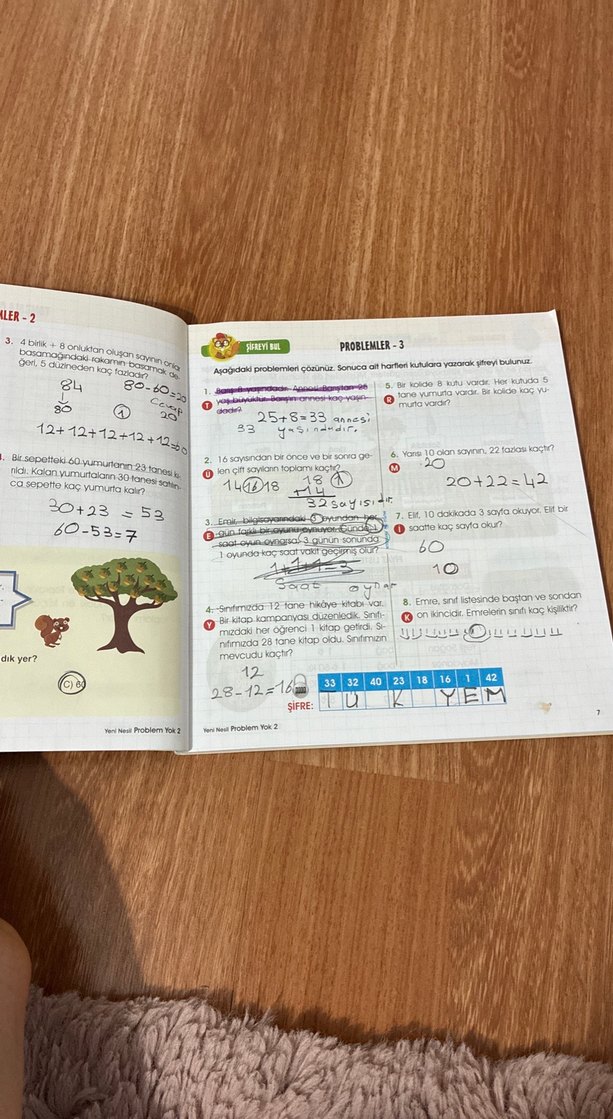 MLER - 2
3. 4 birlik + 8 onluktan oluşan sayının onlar
basamağındaki rakamın basamak de-
ğeri, 5 düzineden kaç fazladır?
84
80
80-60=20
cevap
20
1
12+12+12+12+12=60
Bir sepetteki 60 yumurtanın 23 tanesi kı-
rıldı. Kalan yumurtaların 30 tanesi satılın-
ca sepette kaç yumurta kalır?
30+23 = 53
60-53=7
dık yer?
C) 60
Yeni Nesil Problem Yok 2
ŞİFREYİ BUL
PROBLEMLER - 3
Aşağıdaki problemleri çözünüz. Sonuca ait harfleri kutulara yazarak şifreyi bulunuz.
1. Barış 8 yaşındadır. Annesi Barıştan 25
T yaş büyüktür. Barışın annesi kaç yaşın-
dadır?
25+8=33 annesi
33 yaşındadır.
2. 16 sayısından bir önce ve bir sonra ge-
Ü len çift sayıların toplamı kaçtır?
14 16 18
18
+14
32 sayısıdır
1
3. Emir, bilgisayarındaki 3 oyundan her
E gün farklı bir oyunu oynuyor. Günde 1
saat oyun oynarsa, 3 günün sonunda
1 oyunda kaç saat vakit geçirmiş olur?
1+1+1=3
saat oynar
4. Sınıfımızda 12 tane hikâye kitabı var.
Y Bir kitap kampanyası düzenledik. Sınıfı-
mızdaki her öğrenci 1 kitap getirdi. Sı-
nıfımızda 28 tane kitap oldu. Sınıfımızın
mevcudu kaçtır?
12
28-12=16
5. Bir kolide 8 kutu vardır. Her kutuda 5
R tane yumurta vardır. Bir kolide kaç yu-
murta vardır?
6. Yarısı 10 olan sayının, 22 fazlası kaçtır?
M 20
20+22=42
7. Elif, 10 dakikada 3 sayfa okuyor. Elif bir
İ saatte kaç sayfa okur?
60
10
8. Emre, sınıf listesinde baştan ve sondan
K on ikincidir. Emrelerin sınıfı kaç kişiliktir?
33 32 40 23 18 16 1 42
ŞİFRE: T Ü K Y E M
Yeni Nesil Problem Yok 2
7